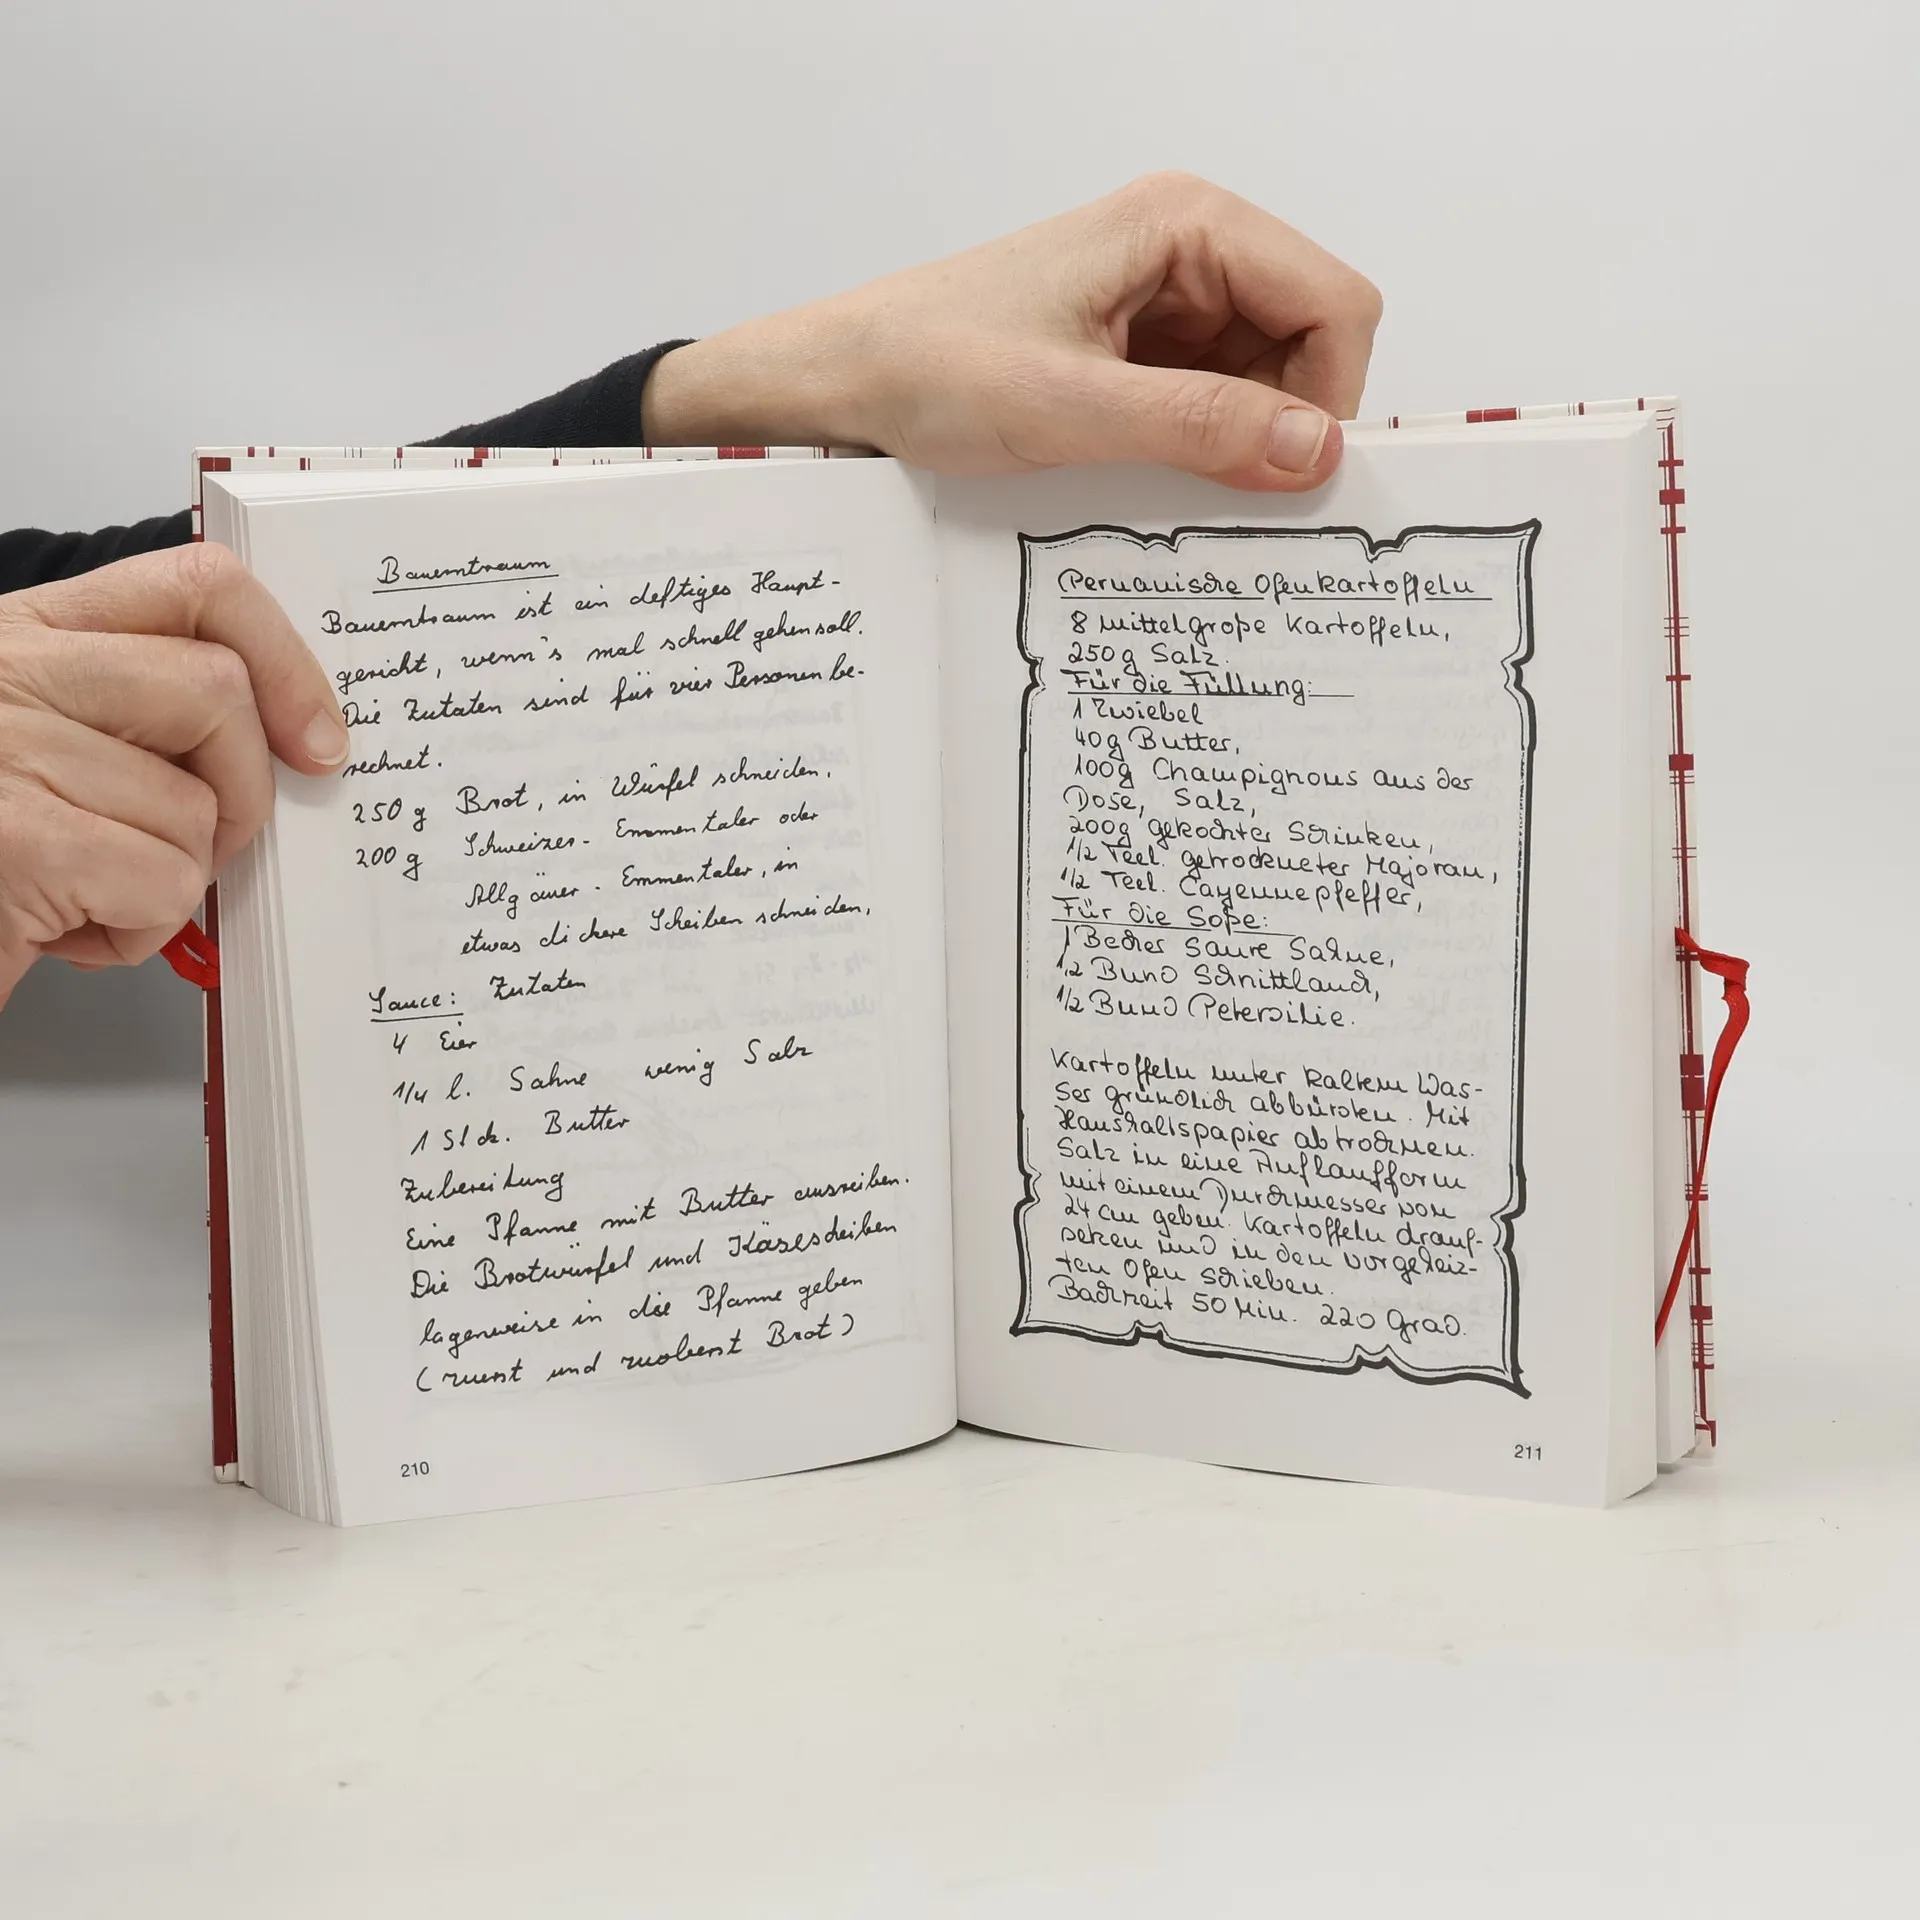 Bauerntraum
Bauerntraum ist ein deftiges Haupt-
gericht, wenn's mal schnell gehen soll.
Die Zutaten sind für vier Personen be-
rechnet.
250 g Brot, in Würfel schneiden,
200 g Schweizer- Emmentaler oder
Allgäuer- Emmentaler, in
etwas dickere Scheiben schneiden,
Sauce: Zutaten
4 Eier
1/4 l. Sahne wenig Salz
1 Stck. Butter
Zubereitung
Eine Pfanne mit Butter ausreiben.
Die Brotwürfel und Käsescheiben
lagenweise in die Pfanne geben
(zuerst und zuoberst Brot)
210
Peruanische Ofenkartoffeln
8 mittelgroße Kartoffeln,
250g Salz.
Für die Füllung:
1 Zwiebel
40g Butter,
100g Champignons aus der
Dose, Salz,
200g gekochter Schinken,
1/2 Teel. getrockneter Majoran,
1/2 Teel. Cayennepfeffer,
Für die Soße:
1 Becher saure Sahne,
1/2 Bund Schnittlauch,
1/2 Bund Petersilie.
Kartoffeln unter kaltem Was-
ser gründlich abbürsten. Mit
Haushaltspapier abtrocknen.
Salz in eine Auflaufform
mit einem Durchmesser von
24 cm geben. Kartoffeln drauf-
setzen und in den vorgeheiz-
ten Ofen schieben.
Backzeit 50 Min. 220 Grad.
211